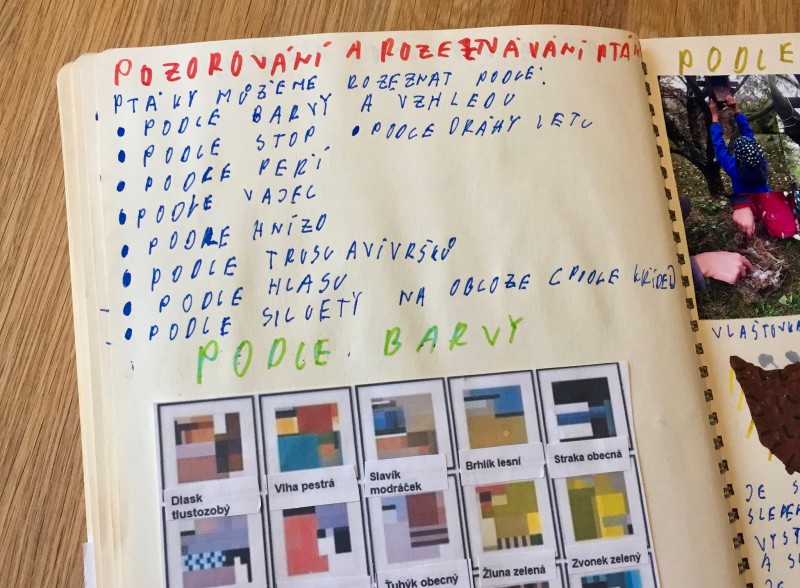 POZOROVÁNÍ A ROZEZNÁVÁNÍ PTÁ
PTÁKY MŮŽEME ROZEZNAT PODLE:
• PODLE BARVY A VZHLEDU
• PODLE STOP • PODLE DRÁHY LETU
• PODLE PEŘÍ
• PODLE VAJEC
• PODLE HNÍZD
• PODLE TRUSU A VÝVRŽKŮ
• PODLE HLASU
• PODLE SILUETY NA OBLOZE (PODLE KŘÍDEL)
PODLE BARVY
Dlask tlustozobý
Vlha pestrá
Slavík modráček
Brhlík lesní
Straka obecná
Ťuhýk obecný
Žluna zelená
Zvonek zelený
PODLE
VLAŠTOVKA
JE S
SLEPE
VYST
A S